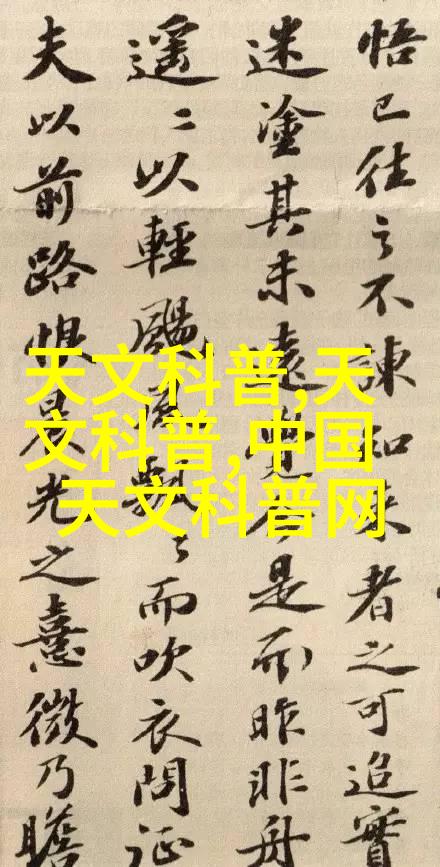 悟已往之不諫知来者之可追實
迷塗其未遠覺今是而昨非舟
遥〻以輕颺風飄〻而吹衣問征
夫以前路恨晨光之憙微乃瞻
天文科普,天
文科普,中国
天文科普网